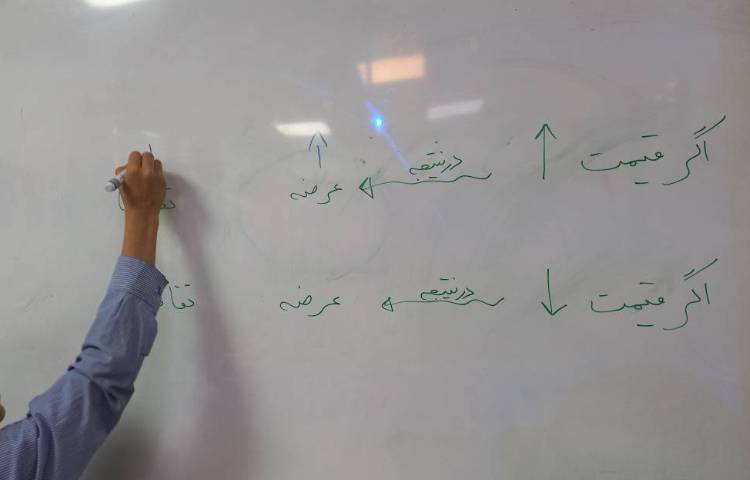 اگر قیمت ↑ در نتیجه ← عرضه ↑
اگر قیمت ↓ در نتیجه ← عرضه